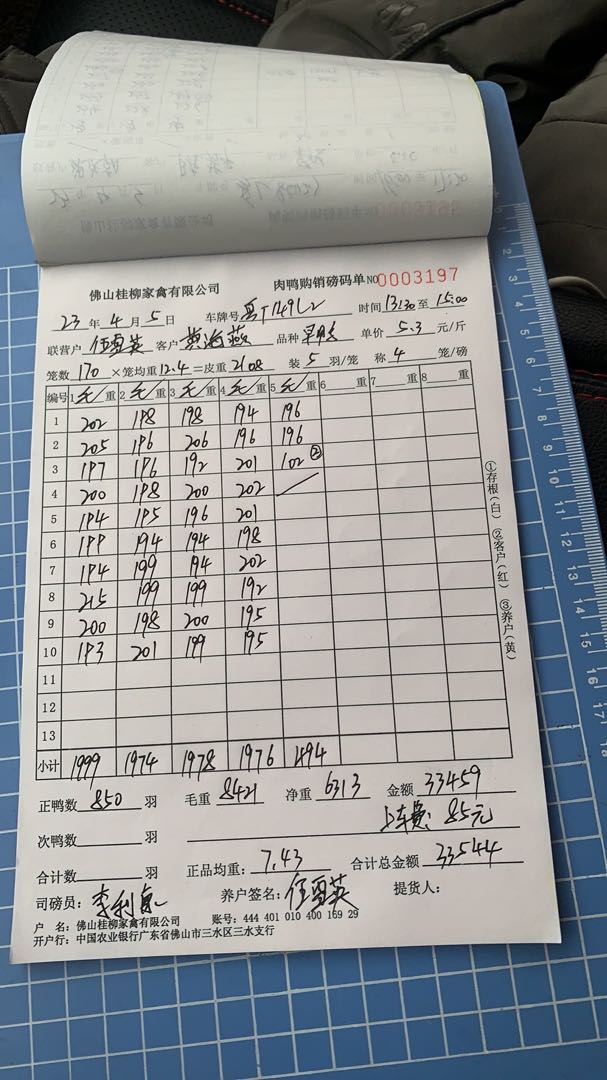 0003196
佛山桂柳家禽有限公司 肉鸭购销磅码单 NO 0003197
23 年 4 月 5 日 车牌号 时间 13:30 至 15:00
联营户 任雪英 客户 黄海燕 品种 单价 5.3 元/斤
笼数 170 ×笼均重 12.4 =皮重 2108 装 5 羽/笼 称 4 笼/磅
编号 1 毛/重 2 毛/重 3 毛/重 4 毛/重 5 毛/重 6 重 7 重 8 重
1 202 198 198 194 196
2 205 196 206 196 196
3 197 196 192 201 102 ②
4 200 198 200 202
5 194 195 196 201
6 199 194 194 198
7 194 199 194 202
8 215 199 199 192
9 200 198 200 195
10 193 201 199 195
11
12
13
小计 1999 1974 1978 1976 494
①存根(白) ②客户(红) ③养户(黄)
正鸭数 850 羽 毛重 8421 净重 6313 金额 33459
次鸭数 羽 上车费: 85元
合计数 羽 正品均重: 7.43 合计总金额 33544
司磅员: 养户签名: 任雪英 提货人:
户 名: 佛山桂柳家禽有限公司 账号: 444 401 010 400 169 29
开户行: 中国农业银行广东省佛山市三水区三水支行